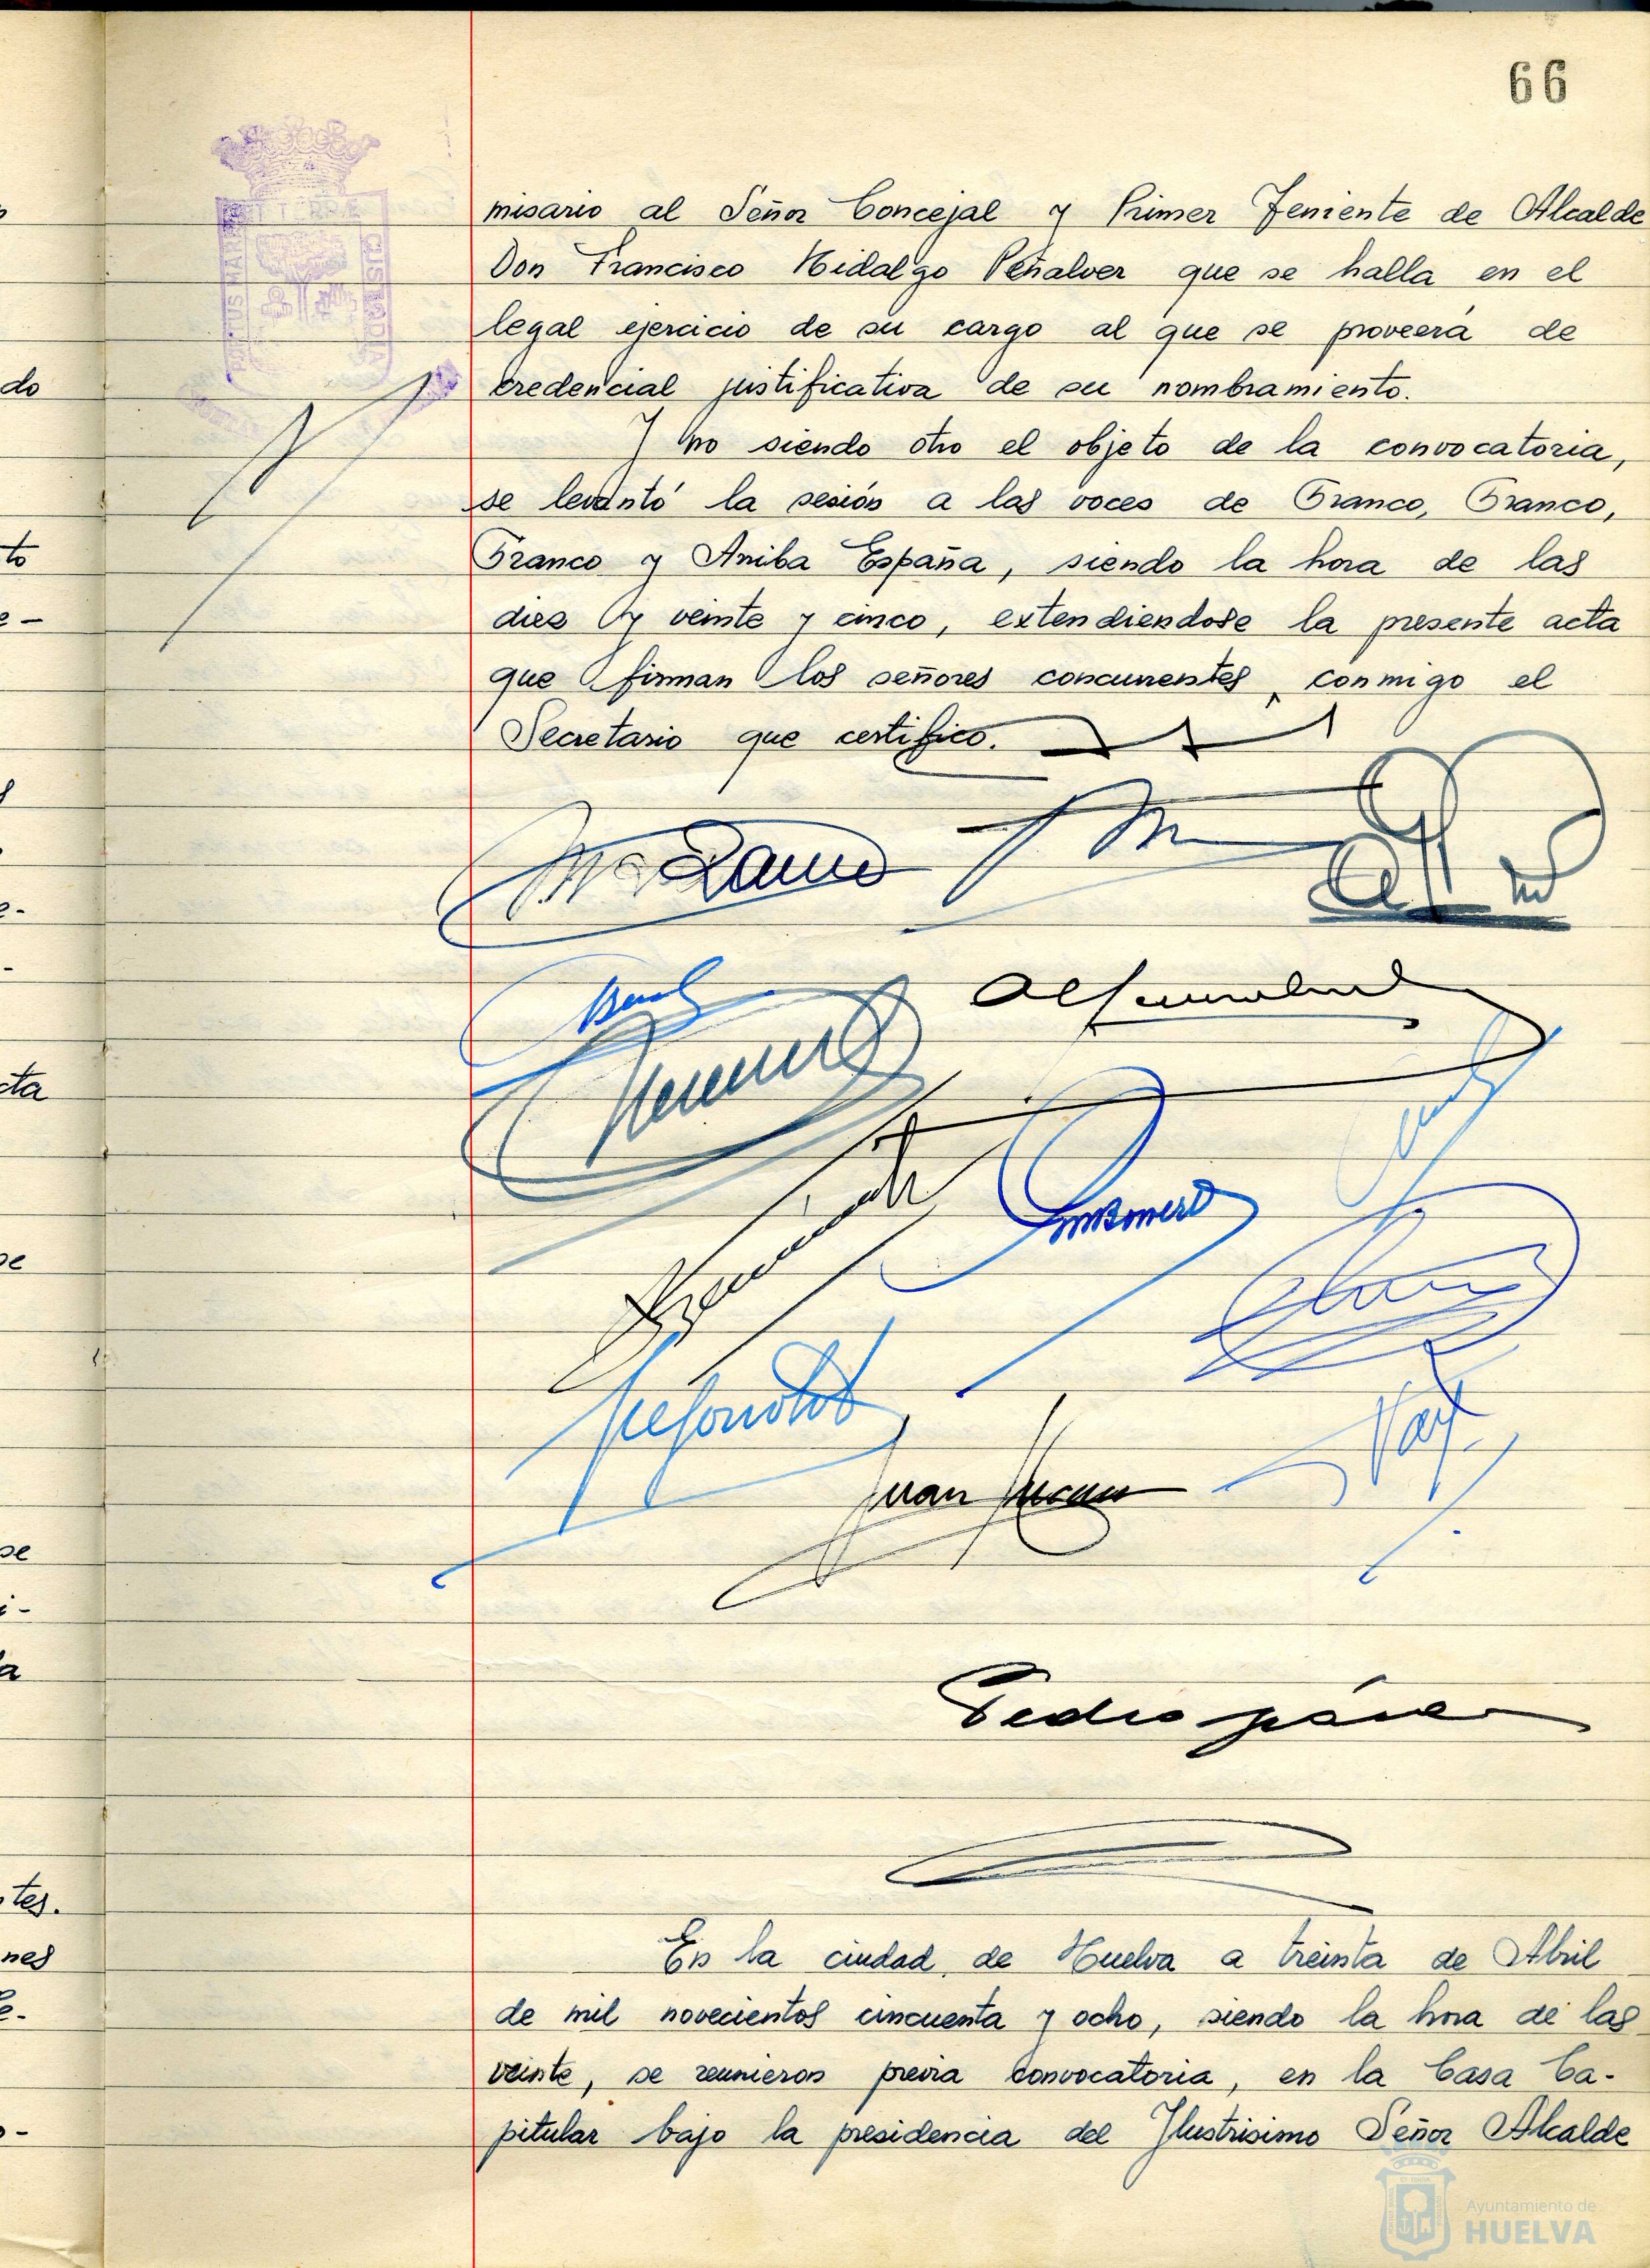 66
misario al Señor Concejal y Primer Teniente de Alcalde
Don Francisco Hidalgo Peñalver que se halla en el
legal ejercicio de su cargo al que se proveerá de
credencial justificativa de su nombramiento.
Y no siendo otro el objeto de la convocatoria,
se levantó la sesión a las voces de Franco, Franco,
Franco y Arriba España, siendo la hora de las
diez y veinte y cinco, extendiendose la presente acta
que firman los señores concurrentes, conmigo el
Secretario que certifico.
Juan
Pedro
En la ciudad de Huelva a treinta de Abril
de mil novecientos cincuenta y ocho, siendo la hora de las
veinte, se reunieron previa convocatoria, en la Casa Ca-
pitular bajo la presidencia del Ilustrisimo Señor Alcalde
do
to
e-
cta
se
i-
tes.
nes
PORTUS MARIS ET TERRÆ CUSTODIA
Ayuntamiento de
HUELVA